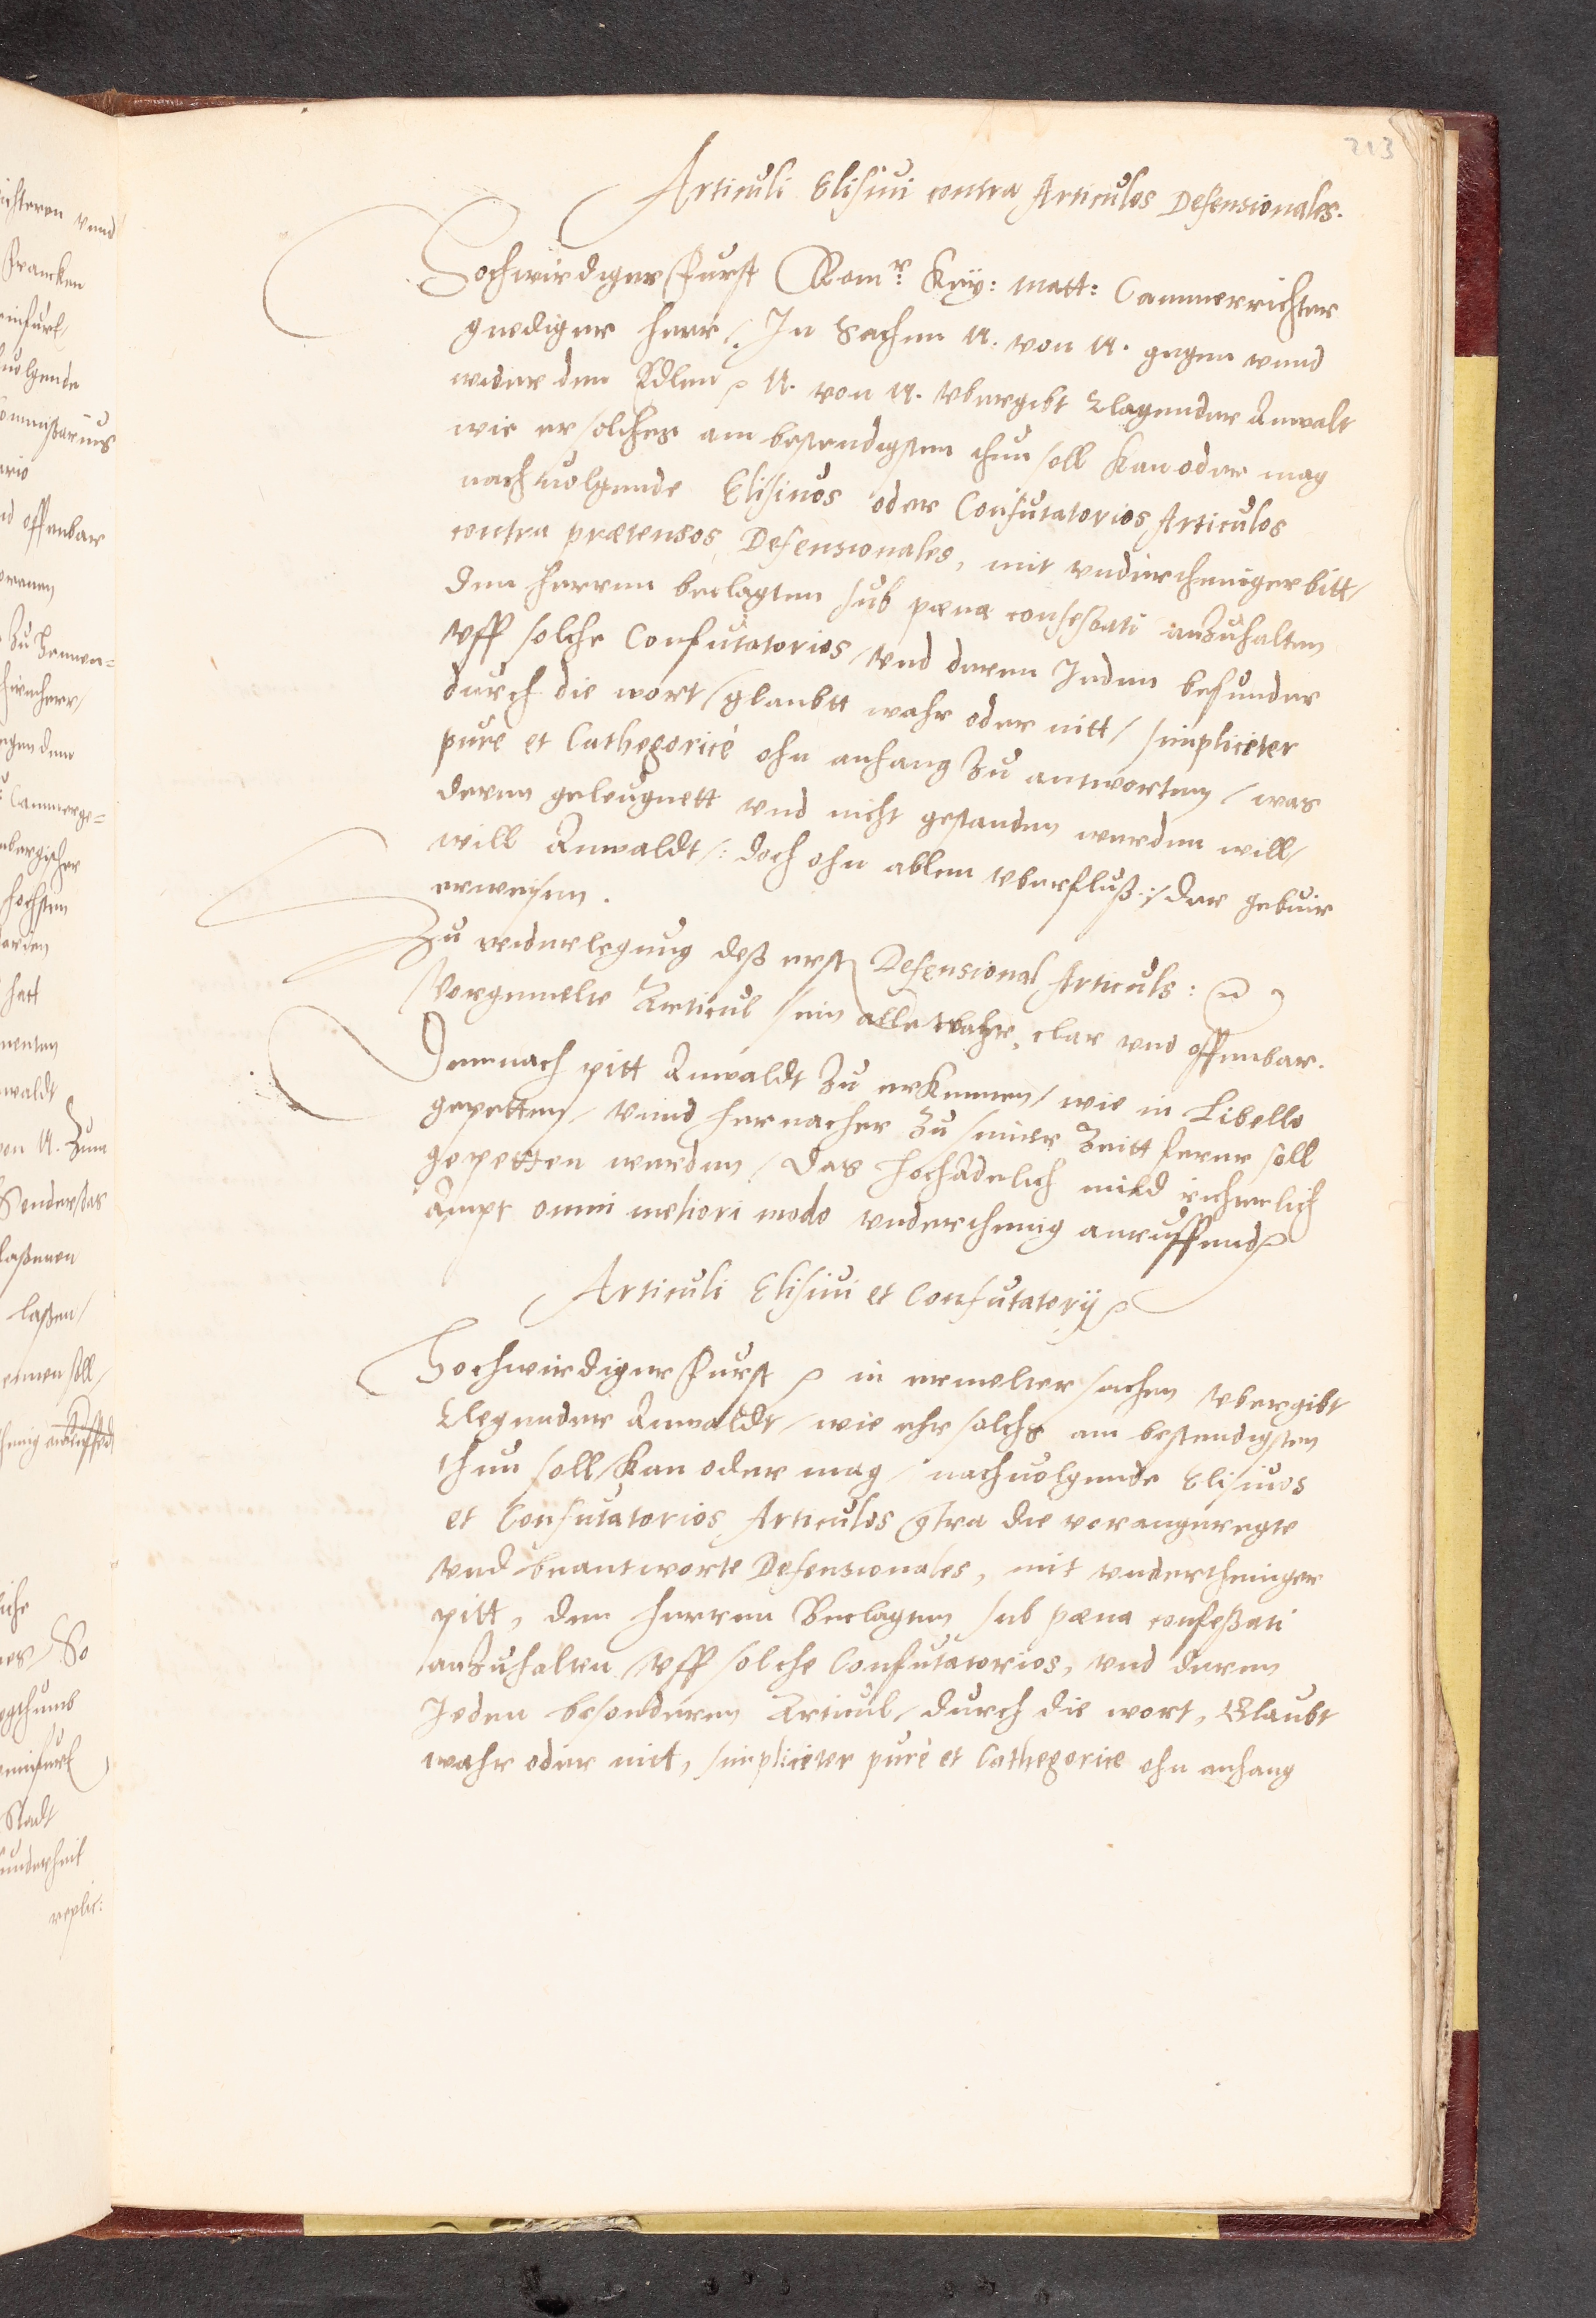 213
Articuli Elisiui contra Articulos Defensionales.
Hochwirdiger Furst Rom^r: Key: Matt: Cammerrichter
gnediger Herr /. In Sachen N. von N. gegen vnnd
wider den Edlen ꝛc N. von N. vbergibt klagender Anwalt
wie er solches am bestendigsten thun soll kan oder mag
nachuolgende Elisiuos oder Confutatorios Articulos
contra prætensos Defensionales, mit vnderthenigerbitt /
den herren beclagten sub pæna confeßati anzuhalten
vff solche Confutatorios / vnd deren Jeden besunder
durch die wort / glaubtt wahr oder nitt / simpliciter
purè et Cathegoricè ohn anhang zu antworten / was
deren geleugnett vnd nicht gestanden werden will /
will Anwaldt /: doch ohn allen vberfluß :/ der gebuir
erweisen.
Zu widerlegung deß erst Defensional Articuls :
Vorgemelte Articul sein alle wahr, clar vnd offenbar.
Demnach pitt Anwaldt zu erkennen / wie in Libello
gepetten / vnnd hernacher zu seiner Zeitt ferner soll
gepetten werden / Das hochadelich mild richterlich
Ampt omni meliori modo vnderthenig anruffend ꝛc
Articuli Elisiui et Confutatorij ꝛc
Hochwirdiger Furst ꝛc in ermelter sachen vbergibt
Clegender Anwaldt / wie ehr solchs am bestendigsten
thun soll / kan oder mag / nachuolgende Elisiuos
et Confutatorios Articulos contra die vorangeregte
vnd beantworte Defensionales, mit vndertheniger
pitt, den Herren Beclagten sub pæna confeßati
anzuhalten / vff solche Confutatorios, vnd deren
Jeden besonderen Articul / durch die wort, Glaubt
wahr oder nit, simpliciter purè et Cathegorice ohn anhang